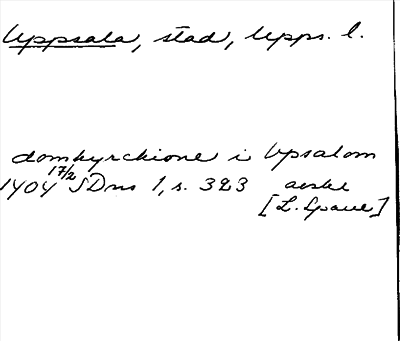 Uppsala, stad, Upps. l.
domkyrchione i Vpsalom
1404 17/2 SDns 1, s. 323 avskr
[L. Spaue]